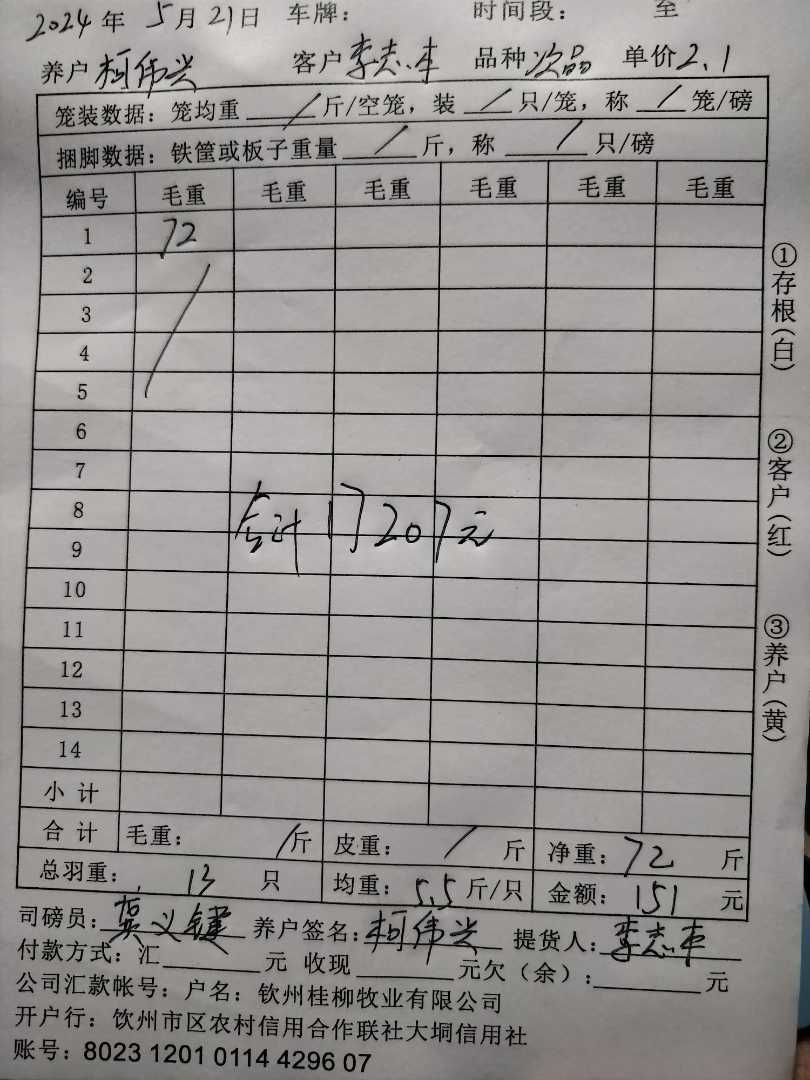 2024年 5月21日 车牌: 时间段: 至
养户 柯伟兴 客户 李志丰 品种 次品 单价 2.1
笼装数据: 笼均重 / 斤/空笼, 装 / 只/笼, 称 / 笼/磅
捆脚数据: 铁筐或板子重量 / 斤, 称 / 只/磅
编号 毛重 毛重 毛重 毛重 毛重 毛重
1 72
2
3
4
5
6
7
8
合计 17207元
9
10
11
12
13
14
小计
合计 毛重: / 斤 皮重: / 斤 净重: 72 斤
总羽重: 13 只 均重: 5.5 斤/只 金额: 151 元
司磅员: 义键 养户签名: 柯伟兴 提货人: 李志丰
付款方式: 汇 元 收现 元欠(余): 元
公司汇款帐号: 户名: 钦州桂柳牧业有限公司
开户行: 钦州市区农村信用合作联社大垌信用社
账号: 8023 1201 0114 4296 07
①存根(白)
②客户(红)
③养户(黄)